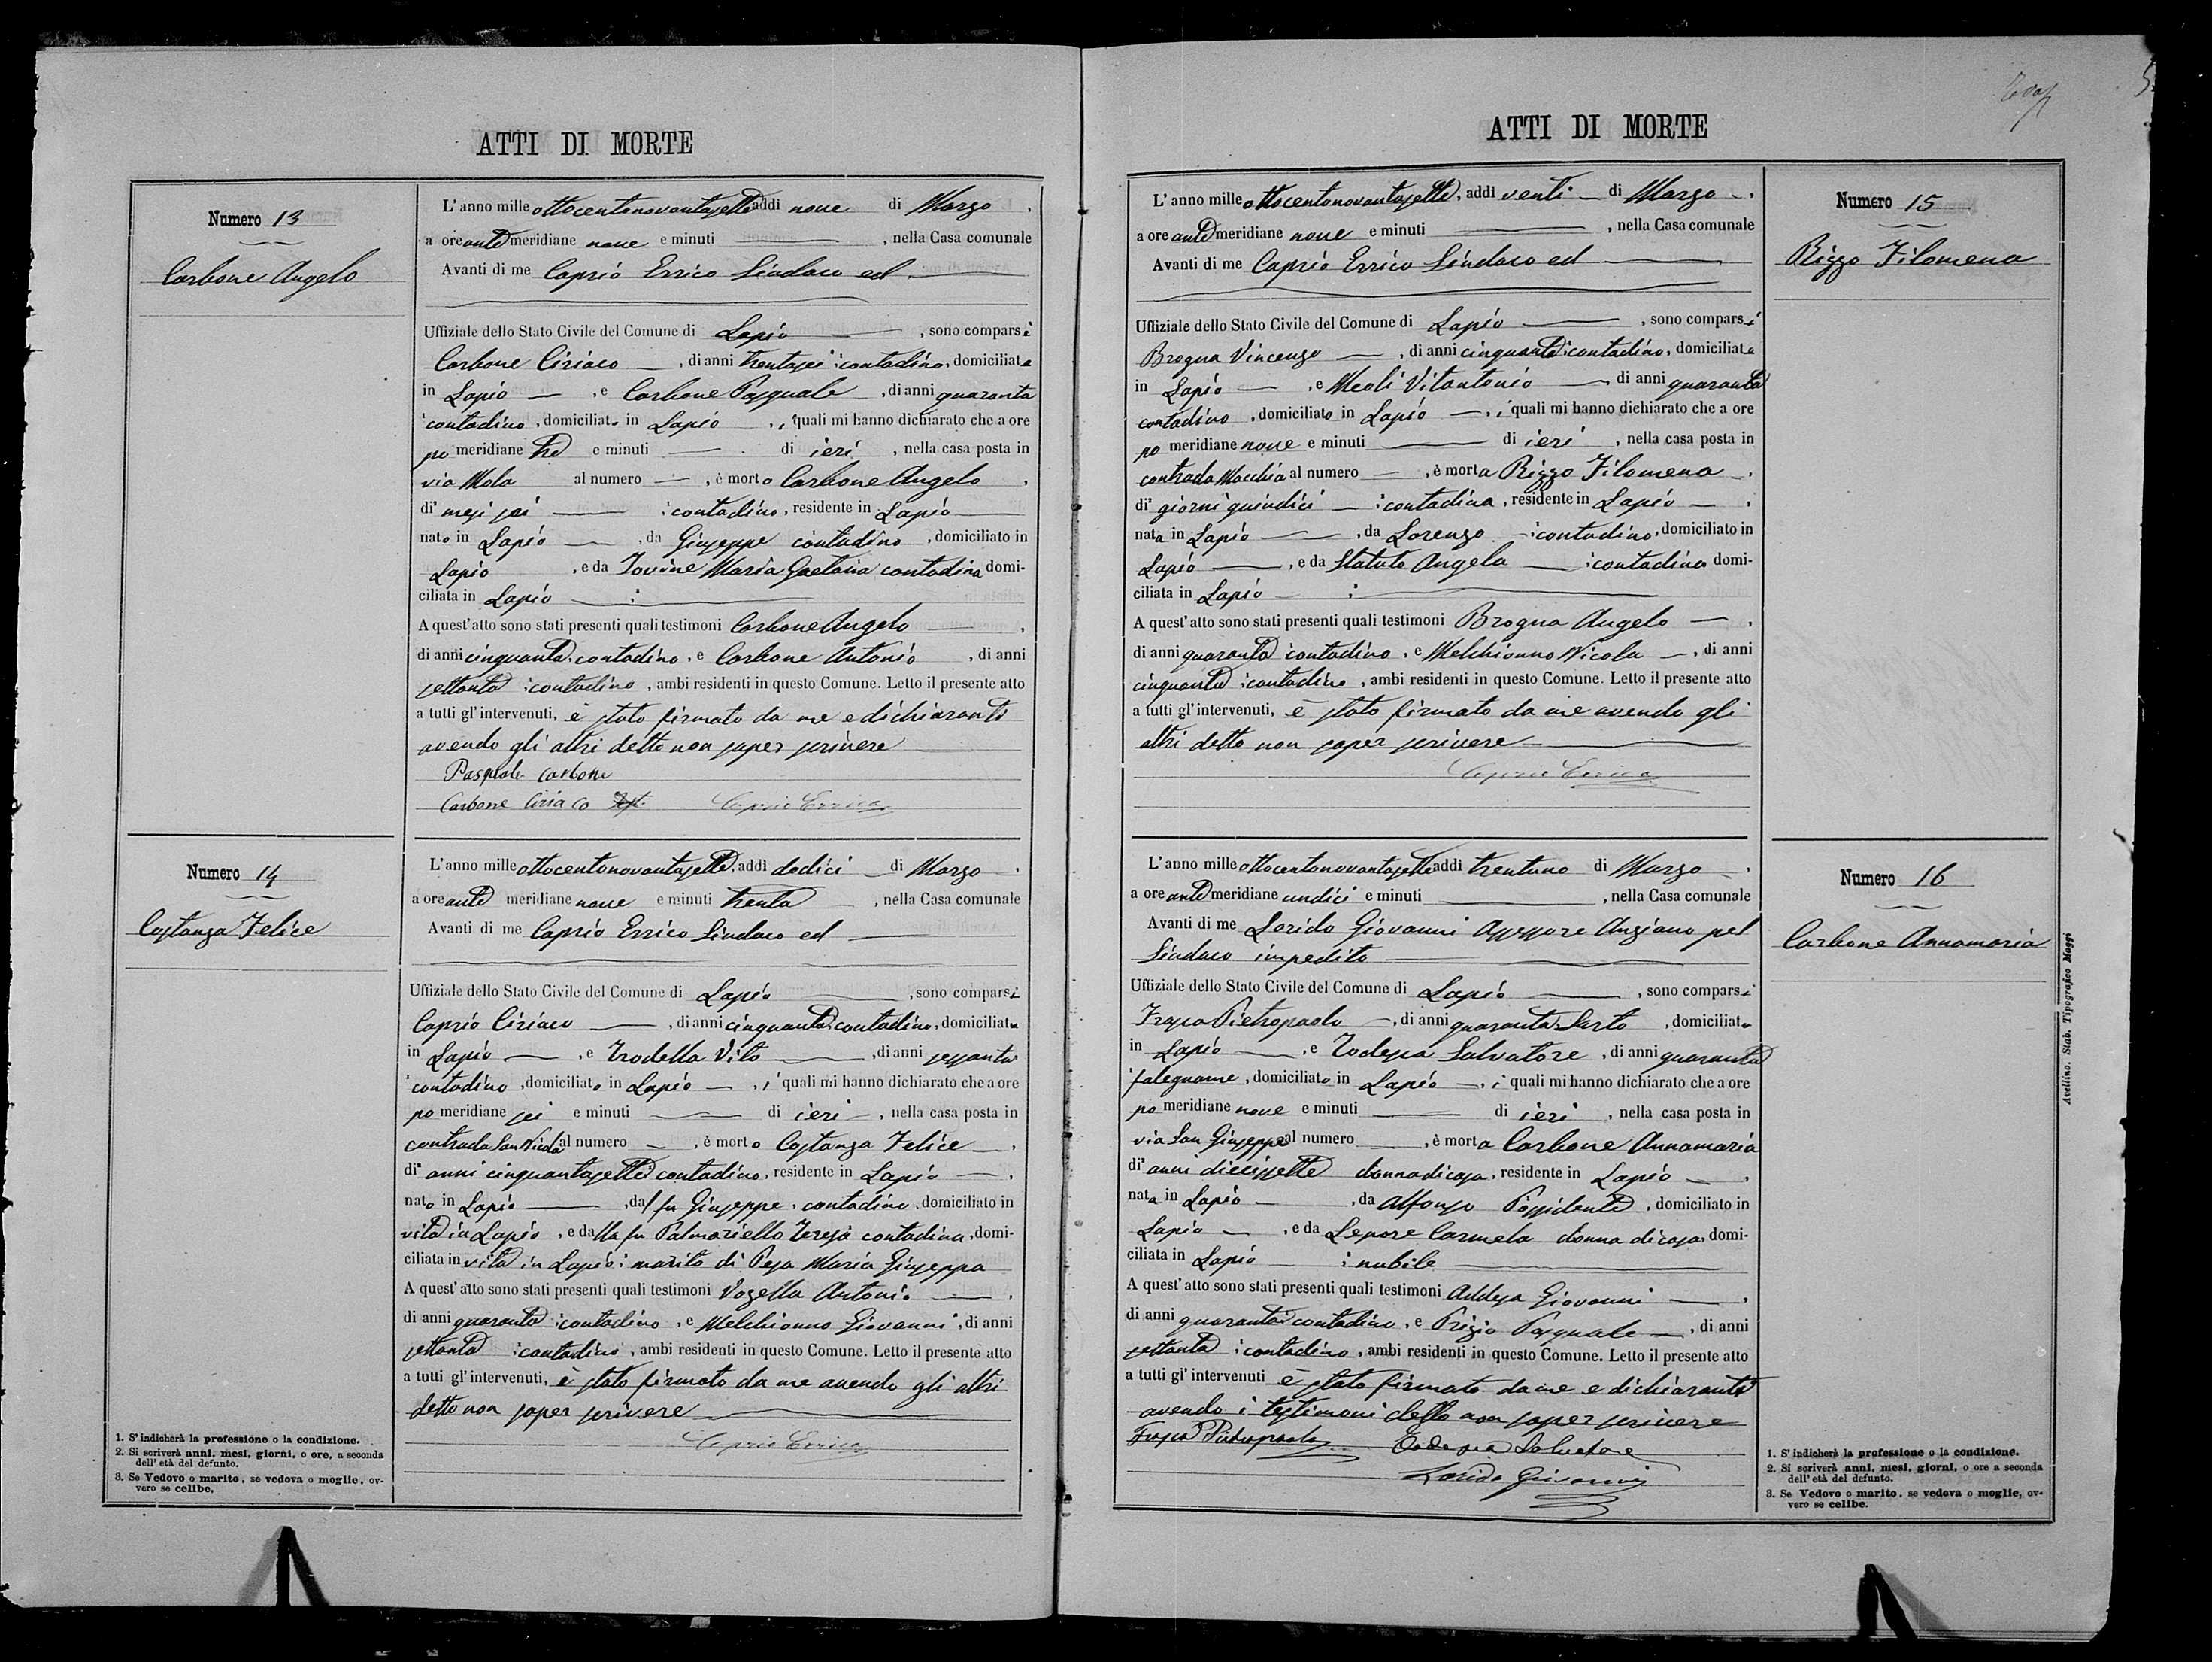 ATTI DI MORTE
Numero 13
Carbone Angelo
L'anno mille ottocentonovantasette, addì nove di Marzo,
a ore ante meridiane nove e minuti , nella Casa comunale
Avanti di me Caprio Errico Sindaco ed
Uffiziale dello Stato Civile del Comune di Lapio , sono comparsi
Carbone Ciriaco , di anni trentasei contadino, domiciliato
in Lapio , e Carbone Pasquale , di anni quaranta
contadino, domiciliato in Lapio , i quali mi hanno dichiarato che a ore
po meridiane tre e minuti di ieri , nella casa posta in
via Mola al numero , è morto Carbone Angelo ,
di mesi sei contadino, residente in Lapio
nato in Lapio , da Giuseppe contadino , domiciliato in
Lapio , e da Iovine Maria Gaetana contadina domi-
ciliata in Lapio ;
A quest'atto sono stati presenti quali testimoni Carbone Angelo ,
di anni cinquanta, contadino, e Carbone Antonio , di anni
settanta contadino , ambi residenti in questo Comune. Letto il presente atto
a tutti gl'intervenuti, è stato firmato da me e dichiaranti
avendo gli altri detto non saper scrivere
Pasquale Carbone
Carbone Ciriaco Caprio Errico
Numero 14
Costanza Felice
L'anno mille ottocentonovantasette, addì dodici di Marzo ,
a ore ante meridiane nove e minuti trenta , nella Casa comunale
Avanti di me Caprio Errico Sindaco ed
Uffiziale dello Stato Civile del Comune di Lapio , sono comparsi
Caprio Ciriaco , di anni cinquanta, contadino, domiciliato
in Lapio , e Trodella Vito , di anni sessanta
contadino , domiciliato in Lapio , i quali mi hanno dichiarato che a ore
po meridiane sei e minuti di ieri , nella casa posta in
contrada San Nicola al numero , è morto Costanza Felice ,
di anni cinquantasette contadino, residente in Lapio ,
nato in Lapio , dal fu Giuseppe, contadino, domiciliato in
vita in Lapio , e dalla fu Palmariello Teresa contadina, domi-
ciliata in vita in Lapio; marito di Pesa Maria Giuseppa
A quest'atto sono stati presenti quali testimoni Vozella Antonio ,
di anni quaranta contadino, e Melchionno Giovanni , di anni
settanta contadino , ambi residenti in questo Comune. Letto il presente atto
a tutti gl'intervenuti, è stato firmato da me avendo gli altri
detto non saper scrivere
Caprio Errico
1. S'indicherà la professione o la condizione.
2. Si scriverà anni, mesi, giorni, o ore, a seconda
dell'età del defunto.
3. Se Vedovo o marito, se vedova o moglie, ov-
vero se celibe.
ATTI DI MORTE
Numero 15
Rizzo Filomena
L'anno mille ottocentonovantasette, addì venti di Marzo ,
a ore ante meridiane nove e minuti , nella Casa comunale
Avanti di me Caprio Errico Sindaco ed
Uffiziale dello Stato Civile del Comune di Lapio , sono comparsi
Brogna Vincenzo , di anni cinquanta contadino, domiciliato
in Lapio , e Meoli Vitantonio , di anni quaranta
contadino , domiciliato in Lapio , i quali mi hanno dichiarato che a ore
po meridiane nove e minuti di ieri , nella casa posta in
contrada Macchia al numero , è morta Rizzo Filomena ,
di giorni quindici contadina, residente in Lapio ,
nata in Lapio , da Lorenzo contadino, domiciliato in
Lapio , e da Statuto Angela contadina domi-
ciliata in Lapio ;
A quest'atto sono stati presenti quali testimoni Brogna Angelo ,
di anni quaranta contadino, e Melchionno Nicola , di anni
cinquanta contadino , ambi residenti in questo Comune. Letto il presente atto
a tutti gl'intervenuti, è stato firmato da me avendo gli
altri detto non saper scrivere
Caprio Errico
Numero 16
Carbone Annamaria
L'anno mille ottocentonovantasette addì trentuno di Marzo ,
a ore ante meridiane undici e minuti , nella Casa comunale
Avanti di me Lerido Giovanni Assessore Anziano pel
Sindaco impedito
Uffiziale dello Stato Civile del Comune di Lapio , sono comparsi
Frasca Pietropaolo , di anni quaranta Sarto , domiciliato
in Lapio , e Todesca Salvatore , di anni quaranta
falegname , domiciliato in Lapio , i quali mi hanno dichiarato che a ore
po meridiane nove e minuti di ieri , nella casa posta in
via San Giuseppe al numero , è morta Carbone Annamaria
di anni diecissette donna di casa, residente in Lapio ,
nata in Lapio , da Alfonso Possidente , domiciliato in
Lapio , e da Lepore Carmela donna di casa domi-
ciliata in Lapio ; nubile
A quest'atto sono stati presenti quali testimoni Addesa Giovanni ,
di anni quaranta contadino, e Prizio Pasquale , di anni
settanta contadino , ambi residenti in questo Comune. Letto il presente atto
a tutti gl'intervenuti è stato firmato da me e dichiaranti
avendo i testimoni detto non saper scrivere
Pietropaolo Todesca Salvatore
Giovanni
1. S'indicherà la professione o la condizione.
2. Si scriverà anni, mesi, giorni, o ore a seconda
dell'età del defunto.
3. Se Vedovo o marito, se vedova o moglie, ov-
vero se celibe.
Avellino. Stab. Tipografico Maggi